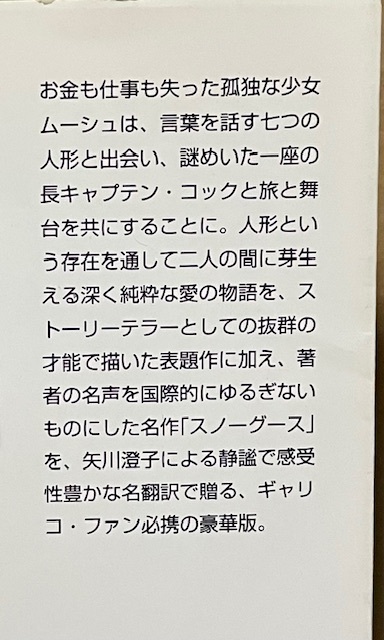 お金も仕事も失った孤独な少女
ムーシュは、言葉を話す七つの
人形と出会い、謎めいた一座の
長キャプテン・コックと旅と舞
台を共にすることに。人形とい
う存在を通して二人の間に芽生
える深く純粋な愛の物語を、ス
トーリーテラーとしての抜群の
才能で描いた表題作に加え、著
者の名声を国際的にゆるぎない
ものにした名作「スノーグース」
を、矢川澄子による静謐で感受
性豊かな名翻訳で贈る、ギャリ
コ・ファン必携の豪華版。